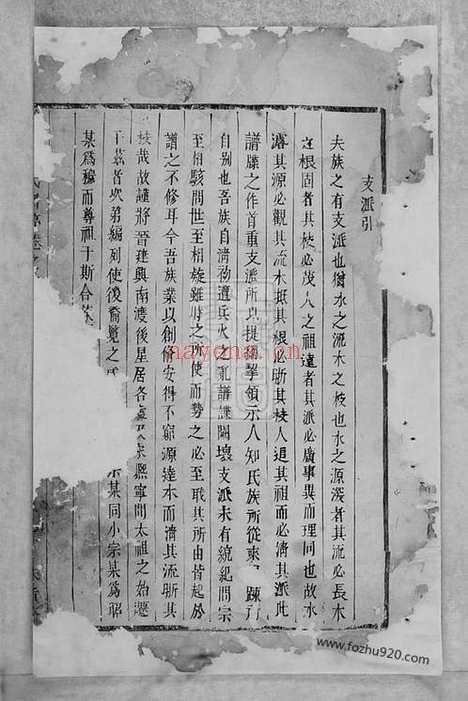 支派引
夫族之有支派也猶水之流木之枝也水之源深者其流必長木
之根固者其枝必茂人之祖遠者其派必廣事異而理同也故水
濬其源必觀其流木抵其根必斯其枝人追其祖而必清其派此
譜牒之作首重支派所以提綱挈領示人知氏族所從來
自别也吾族自清初遭兵火之亂譜牒闕壞支派未有統紀間宗
至相駭問世至相旋雖時之所使而勢之必至取其所由皆起於
譜之不修耳今吾族業以創修安得不窮源達本而清其流斯其
枝哉故謹將晉建興南渡後星居各 宋熙寧間太祖之始遷
于茲者次第編列使後裔覽之 宗某同小宗某爲昭
某爲穆而尊祖于斯合族
nayona.cn
www.fozhu920.com